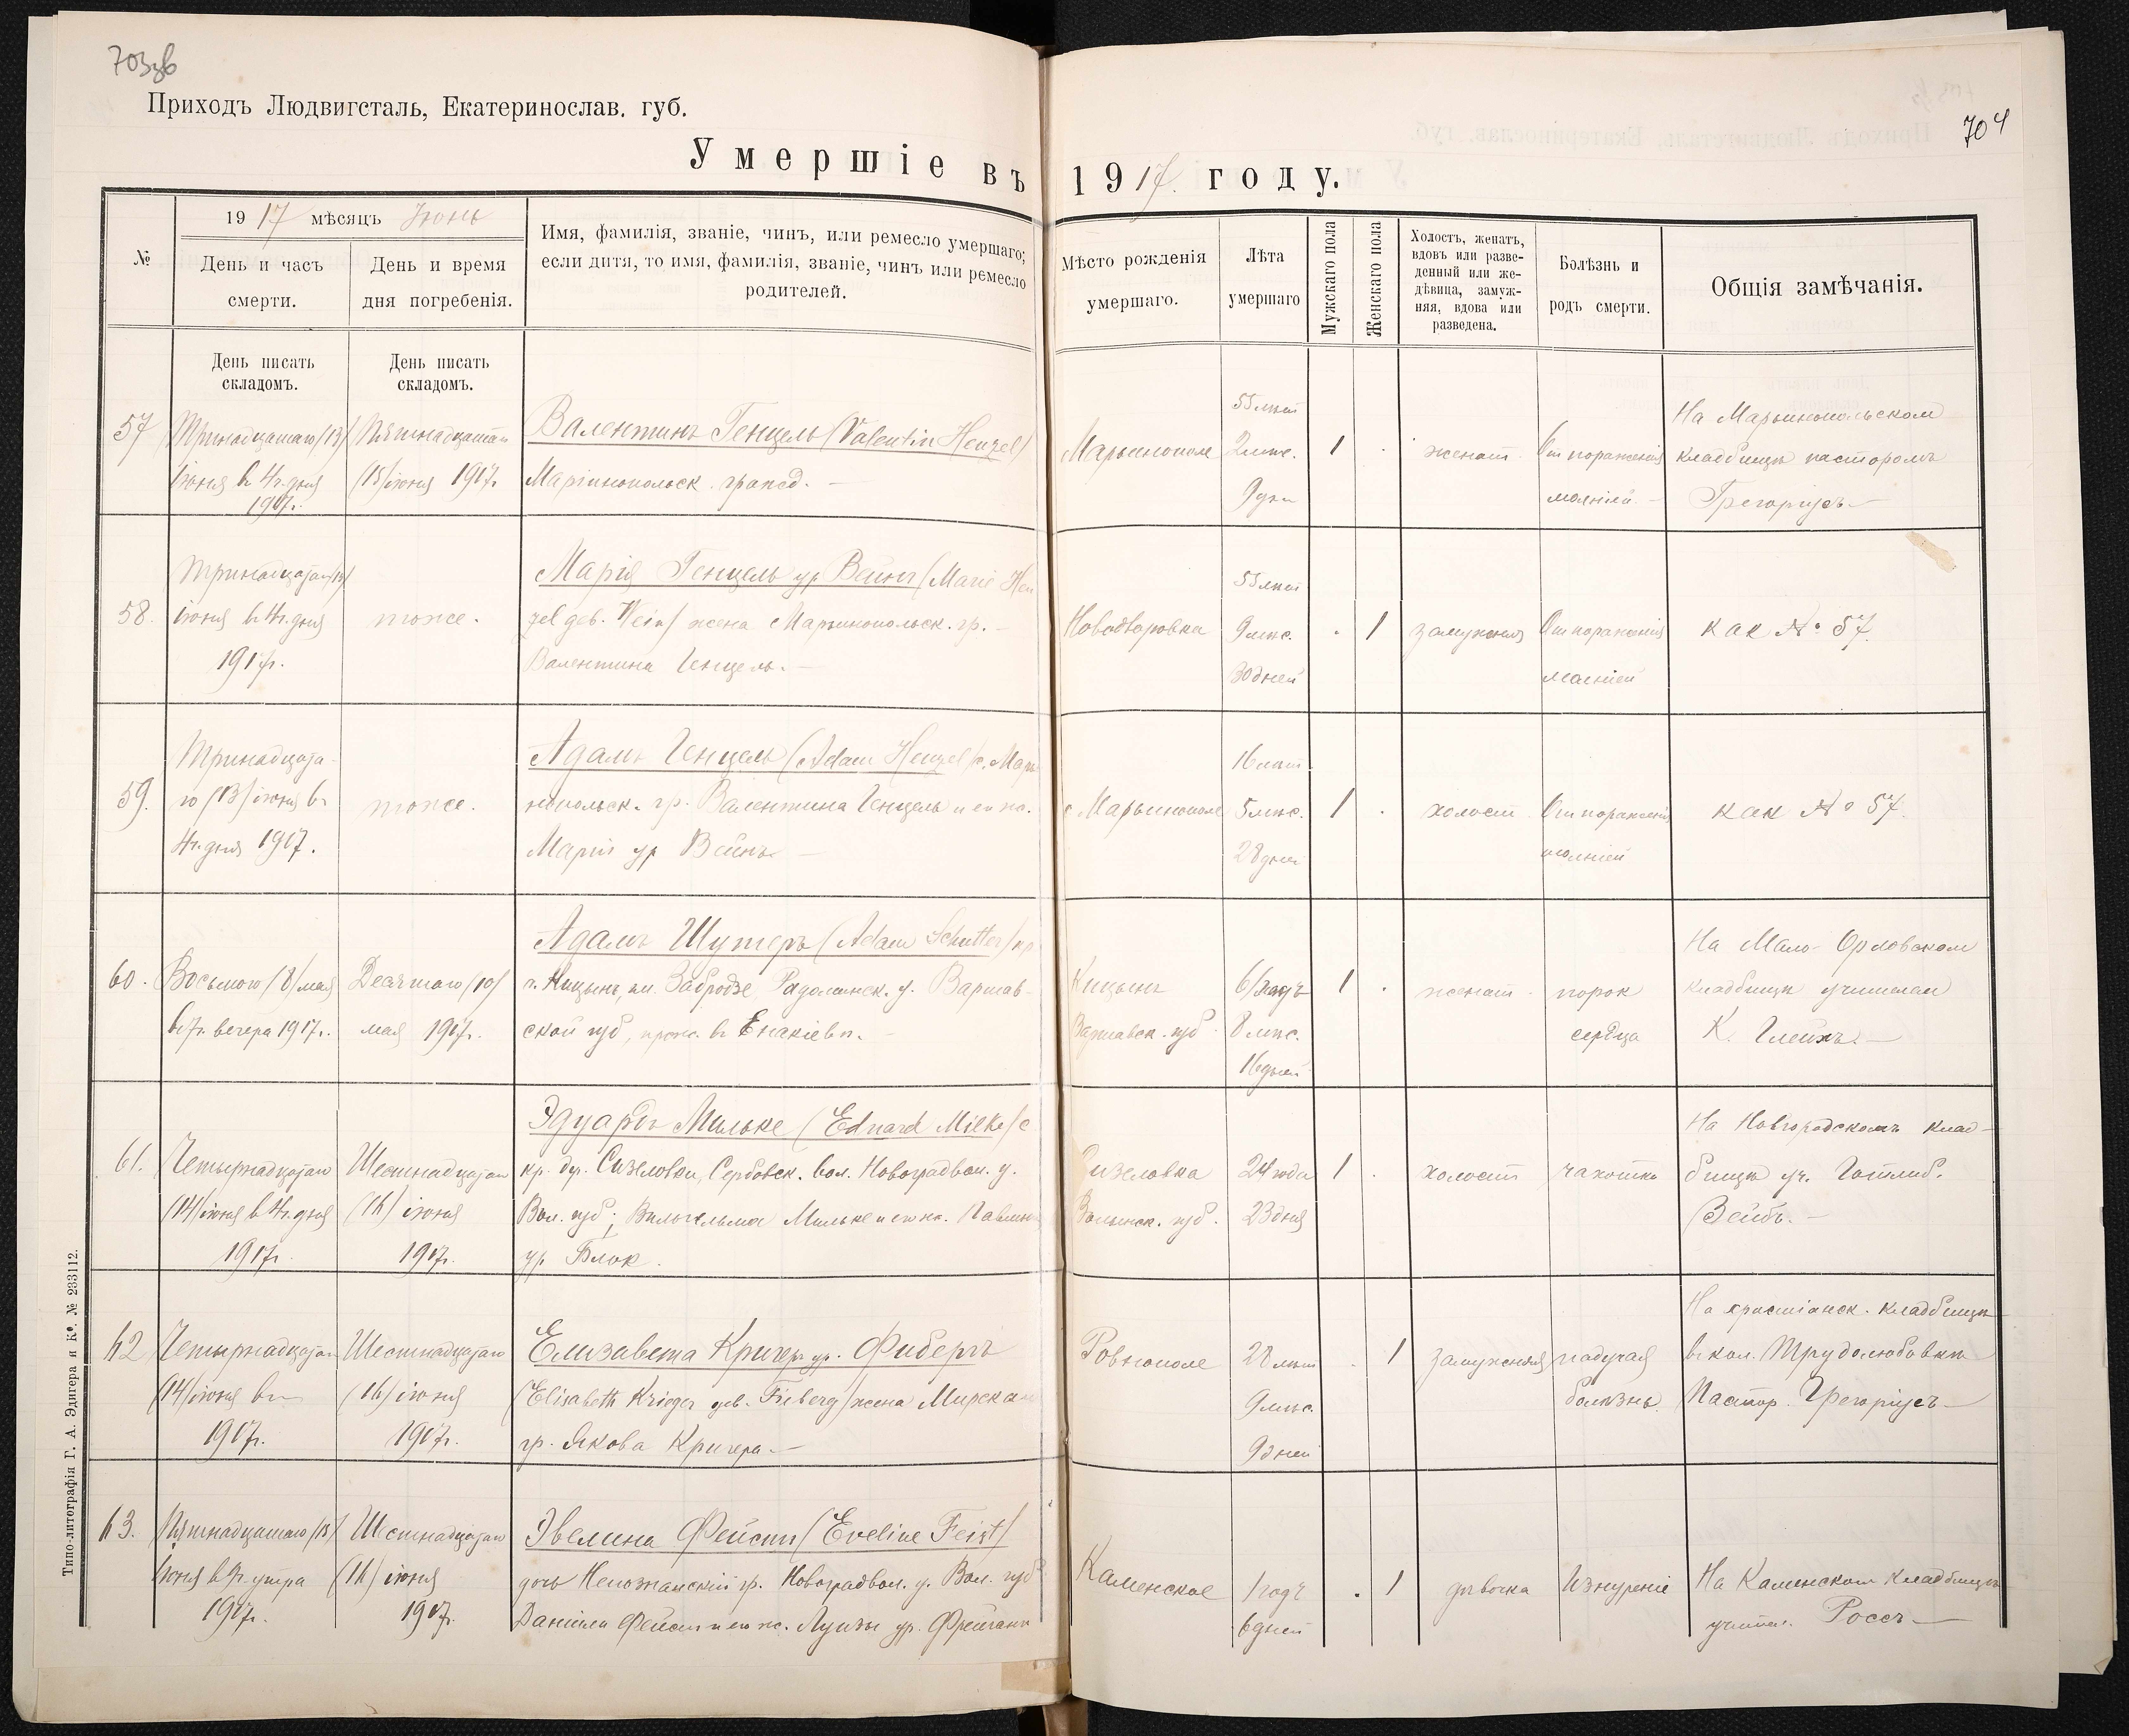 703зв
Приходъ Людвигсталь, Екатеринослав. губ.
704
Умершіе въ 1917 году.
№
1917 мѣсяцъ Іюнь
День и часъ
смерти.
День и время
дня погребенія.
Имя, фамилія, званіе, чинъ, или ремесло умершаго;
если дитя, то имя, фамилія, званіе, чинъ или ремесло
родителей.
Мѣсто рожденія
умершаго.
Лѣта
умершаго
Мужскаго пола
Женскаго пола
Холостъ, женатъ,
вдовъ или разве-
денный или же-
дѣвица, замуж-
няя, вдова или
разведена.
Болѣзнь и
родъ смерти.
Общія замѣчанія.
День писать
складомъ.
День писать
складомъ.
57
Тринадцатаго (13)
іюня в 4 ч. дня
1917г.
Пятнадцатаго
(15) іюня 1917г.
Валентинъ Генцель (Valentin Henzel)
Маріинопольск. гражд. —
Марьинополе
55 лѣт
2 мѣс.
9 дн
1
женат
От пораженія
молніей —
На Марьинопольском
кладбищѣ пасторомъ
Грегоріусъ —
58.
Тринадцатаго (13)
іюня в 4 ч. дня
1917г.
тоже.
Марія Генцель ур Вейнъ (Marie Hen
zel geb. Wein) жена Марьинопольск. гр. —
Валентина Генцель. —
Новодворовка
55 лѣт
9 мѣс.
30 дней
1
замужняя
От пораженія
молніей
как № 57.
59.
Тринадцата-
го (13) іюня в
4 ч. дня 1917.
тоже.
Адамъ Генцель (Adam Henzel) с. Марь
инопольск. гр. Валентина Генцель и его ж.
Маріи ур Вейнъ —
Марьинополе
16 лѣт
5 мѣс.
28 дней
1
холост
От пораженія
молніей
как № 57.
60.
Восьмого (8) мая
в 7 ч. вечера 1917г.
Десятаго (10)
мая 1917г.
Адамъ Шутеръ (Adam Schutter) кр
Варшав-
ской губ, прож. в Енакіево.
Варшавск. губ.
8 мѣс.
16 дней
1
женат
порок
сердца
На Мало-Орловском
кладбищѣ учителем
К. Глейхъ. —
61.
Четырнадцатаго
(14) іюня в 4 ч. дня
1917г.
Шестнадцатаго
(16) іюня
1917г.
Эдуардъ Мильке (Eduard Milke) с
кр. др. Сизеловки, Сербовск. вол. Новоградвол. у.
Вол. губ; Вильгельма Мильке и его ж. Павлины
ур Блок.
Сизеловка
Волынск. губ.
24 года
23 дня
1
холост
чахотка
На Новгородскомъ клад-
бищѣ уч. Готлиб.
Зейбъ. —
62
Четырнадцатаго
(14) іюня
1917г.
Шестнадцатаго
(16) іюня
1917г.
Елизавета Кригеръ ур. Фибергъ
(Elisabeth Krieger geb. Frieberg) жена
гр. Якова Кригера. —
Ровнополе
28 лѣт
9 мѣс.
9 дней
1
замужняя
падучая
болѣзнь.
На христіанск. кладбищѣ
в кол. Трудолюбовкѣ
Пастор. Грегоріусъ —
63.
Пятнадцатаго (15)
іюня в 9 ч. утра
1917г.
Шестнадцатаго
(16) іюня
1917г.
Эвелина Фейстъ (Eveline Feist)
дочь гр. Новоградвол. у. Вол. губ
Даніила Фейст и его ж. Луизы ур.
Каменское
1 годъ
6 дней
1
дѣвочка
Изнуреніе
На Каменском кладбищѣ
учител. Россъ —
Типо-литографія Г. А. Эдигера и К°. № 233112.